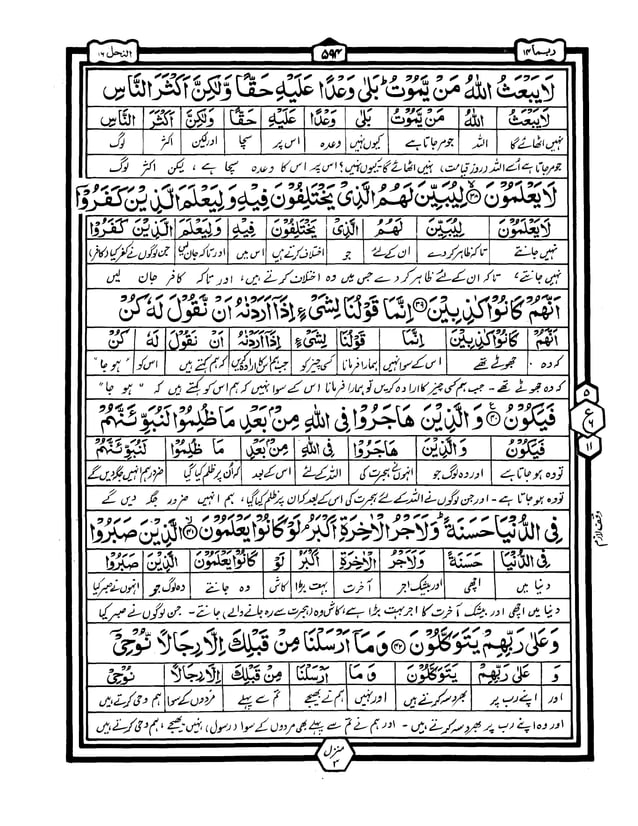 ربما ۱۴
۵۹۴
النحل ۱۶
لَا يَبْعَثُ اللّٰهُ مَنْ يَّمُوْتُ ؕ بَلٰى وَعْدًا عَلَيْهِ حَقًّا وَّلٰكِنَّ اَكْثَرَ النَّاسِ
لَا يَبْعَثُ اللّٰهُ مَنْ يَّمُوْتُ بَلٰى وَعْدًا عَلَيْهِ حَقًّا وَّلٰكِنَّ اَكْثَرَ النَّاسِ
نہیں اٹھائے گا اللہ جو مر جاتا ہے کیوں نہیں وعدہ اس پر سچا اور لیکن اکثر لوگ
جو مر جاتا ہے اُسے اللہ (روز قیامت) نہیں اٹھائے گا، کیوں نہیں؟ اس پر اس کا وعدہ سچا ہے، لیکن اکثر لوگ
لَا يَعْلَمُوْنَ ۙ۳۸ لِيُبَيِّنَ لَهُمُ الَّذِيْ يَخْتَلِفُوْنَ فِيْهِ وَلِيَعْلَمَ الَّذِيْنَ كَفَرُوْۤا
لَا يَعْلَمُوْنَ لِيُبَيِّنَ لَهُمُ الَّذِيْ يَخْتَلِفُوْنَ فِيْهِ وَلِيَعْلَمَ الَّذِيْنَ كَفَرُوْۤا
نہیں جانتے تاکہ ظاہر کر دے ان کے لئے جو اختلاف کرتے ہیں اس میں اور تاکہ جان لیں جن لوگوں نے کفر کیا (کافر)
نہیں جانتے، تاکہ ان کے لئے ظاہر کر دے جس میں وہ اختلاف کرتے ہیں، اور تاکہ کافر جان لیں
اَنَّهُمْ كَانُوْا كٰذِبِيْنَ ۳۹ اِنَّمَا قَوْلُنَا لِشَيْءٍ اِذَاۤ اَرَدْنٰهُ اَنْ نَّقُوْلَ لَهٗ كُنْ
اَنَّهُمْ كَانُوْا كٰذِبِيْنَ اِنَّمَا قَوْلُنَا لِشَيْءٍ اِذَاۤ اَرَدْنٰهُ اَنْ نَّقُوْلَ لَهٗ كُنْ
کہ وہ جھوٹے تھے اس کے سوا نہیں ہمارا فرمانا کسی چیز کو جب ہم اس کا ارادہ کریں کہ ہم کہتے ہیں اس کو ہو جا
کہ وہ جھوٹے تھے۔ جب ہم کسی چیز کا ارادہ کریں تو ہمارا فرمانا اس کے سوا نہیں کہ ہم اس کو کہتے ہیں کہ "ہو جا"
فَيَكُوْنُ ۴۰ وَالَّذِيْنَ هَاجَرُوْا فِي اللّٰهِ مِنْۢ بَعْدِ مَا ظُلِمُوْا لَنُبَوِّئَنَّهُمْ
فَيَكُوْنُ وَالَّذِيْنَ هَاجَرُوْا فِي اللّٰهِ مِنْۢ بَعْدِ مَا ظُلِمُوْا لَنُبَوِّئَنَّهُمْ
تو وہ ہو جاتا ہے اور وہ لوگ جو انہوں نے ہجرت کی اللہ کے لئے اس کے بعد کہ ان پر ظلم کیا گیا ضرور ہم انہیں جگہ دیں گے
تو وہ ہو جاتا ہے۔ اور جن لوگوں نے اللہ کے لئے ہجرت کی اس کے بعد کہ ان پر ظلم کیا گیا، ہم انہیں ضرور جگہ دیں گے
فِي الدُّنْيَا حَسَنَةً ؕ وَلَاَجْرُ الْاٰخِرَةِ اَكْبَرُ ۘ لَوْ كَانُوْا يَعْلَمُوْنَ ۙ۴۱ الَّذِيْنَ صَبَرُوْا
فِي الدُّنْيَا حَسَنَةً وَلَاَجْرُ الْاٰخِرَةِ اَكْبَرُ لَوْ كَانُوْا يَعْلَمُوْنَ الَّذِيْنَ صَبَرُوْا
دنیا میں اچھی اور بیشک اجر آخرت بہت بڑا کاش وہ جانتے وہ لوگ جو انہوں نے صبر کیا
دنیا میں اچھی اور بیشک آخرت کا اجر بہت بڑا ہے، کاش وہ (ہجرت سے رہ جانے والے) جانتے۔ جن لوگوں نے صبر کیا
وَعَلٰى رَبِّهِمْ يَتَوَكَّلُوْنَ ۴۲ وَمَاۤ اَرْسَلْنَا مِنْ قَبْلِكَ اِلَّا رِجَالًا نُّوْحِيْۤ
وَ عَلٰى رَبِّهِمْ يَتَوَكَّلُوْنَ وَمَاۤ اَرْسَلْنَا مِنْ قَبْلِكَ اِلَّا رِجَالًا نُّوْحِيْۤ
اور اپنے رب پر بھروسہ کرتے ہیں اور نہیں ہم نے بھیجے تم سے پہلے مردوں کے سوا ہم وحی کرتے ہیں
اور وہ اپنے رب پر بھروسہ کرتے ہیں۔ اور ہم نے تم سے پہلے بھی مردوں کے سوا (رسول) نہیں بھیجے، ہم وحی کرتے ہیں
۵
ع
۶
۱۱
وقف لازم
منزل
۳